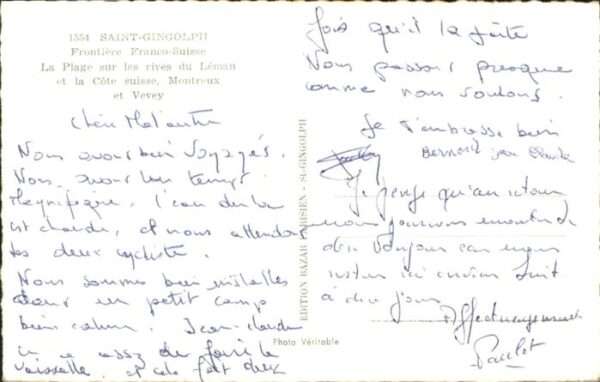 1554 SAINT-GINGOLPH
Frontière Franco-Suisse
La Plage sur les rives du Léman
et la Côte suisse, Montreux
et Vevey
Chère
Nous avons bien voyagés.
Nous avons un temps
Magnifique. l'eau du lac
est chaude, et nous attendons
les deux cycliste.
Nous sommes bien installés
dans un petit camp
bien calme. Jean-claude
assez de faire la
vaisselle, et cela fait deux
EDITION BAZAR PARISIEN - St-GINGOLPH
Photo Véritable
fois qu'il la faite
Nous passons presque
comme nous voulons.
Je t'embrasse bien
Bernard Jean Claude
Je pense qu'au retour
nous pourrons
rester ici environ huit
à dix jours
Affectueusement
Paulet